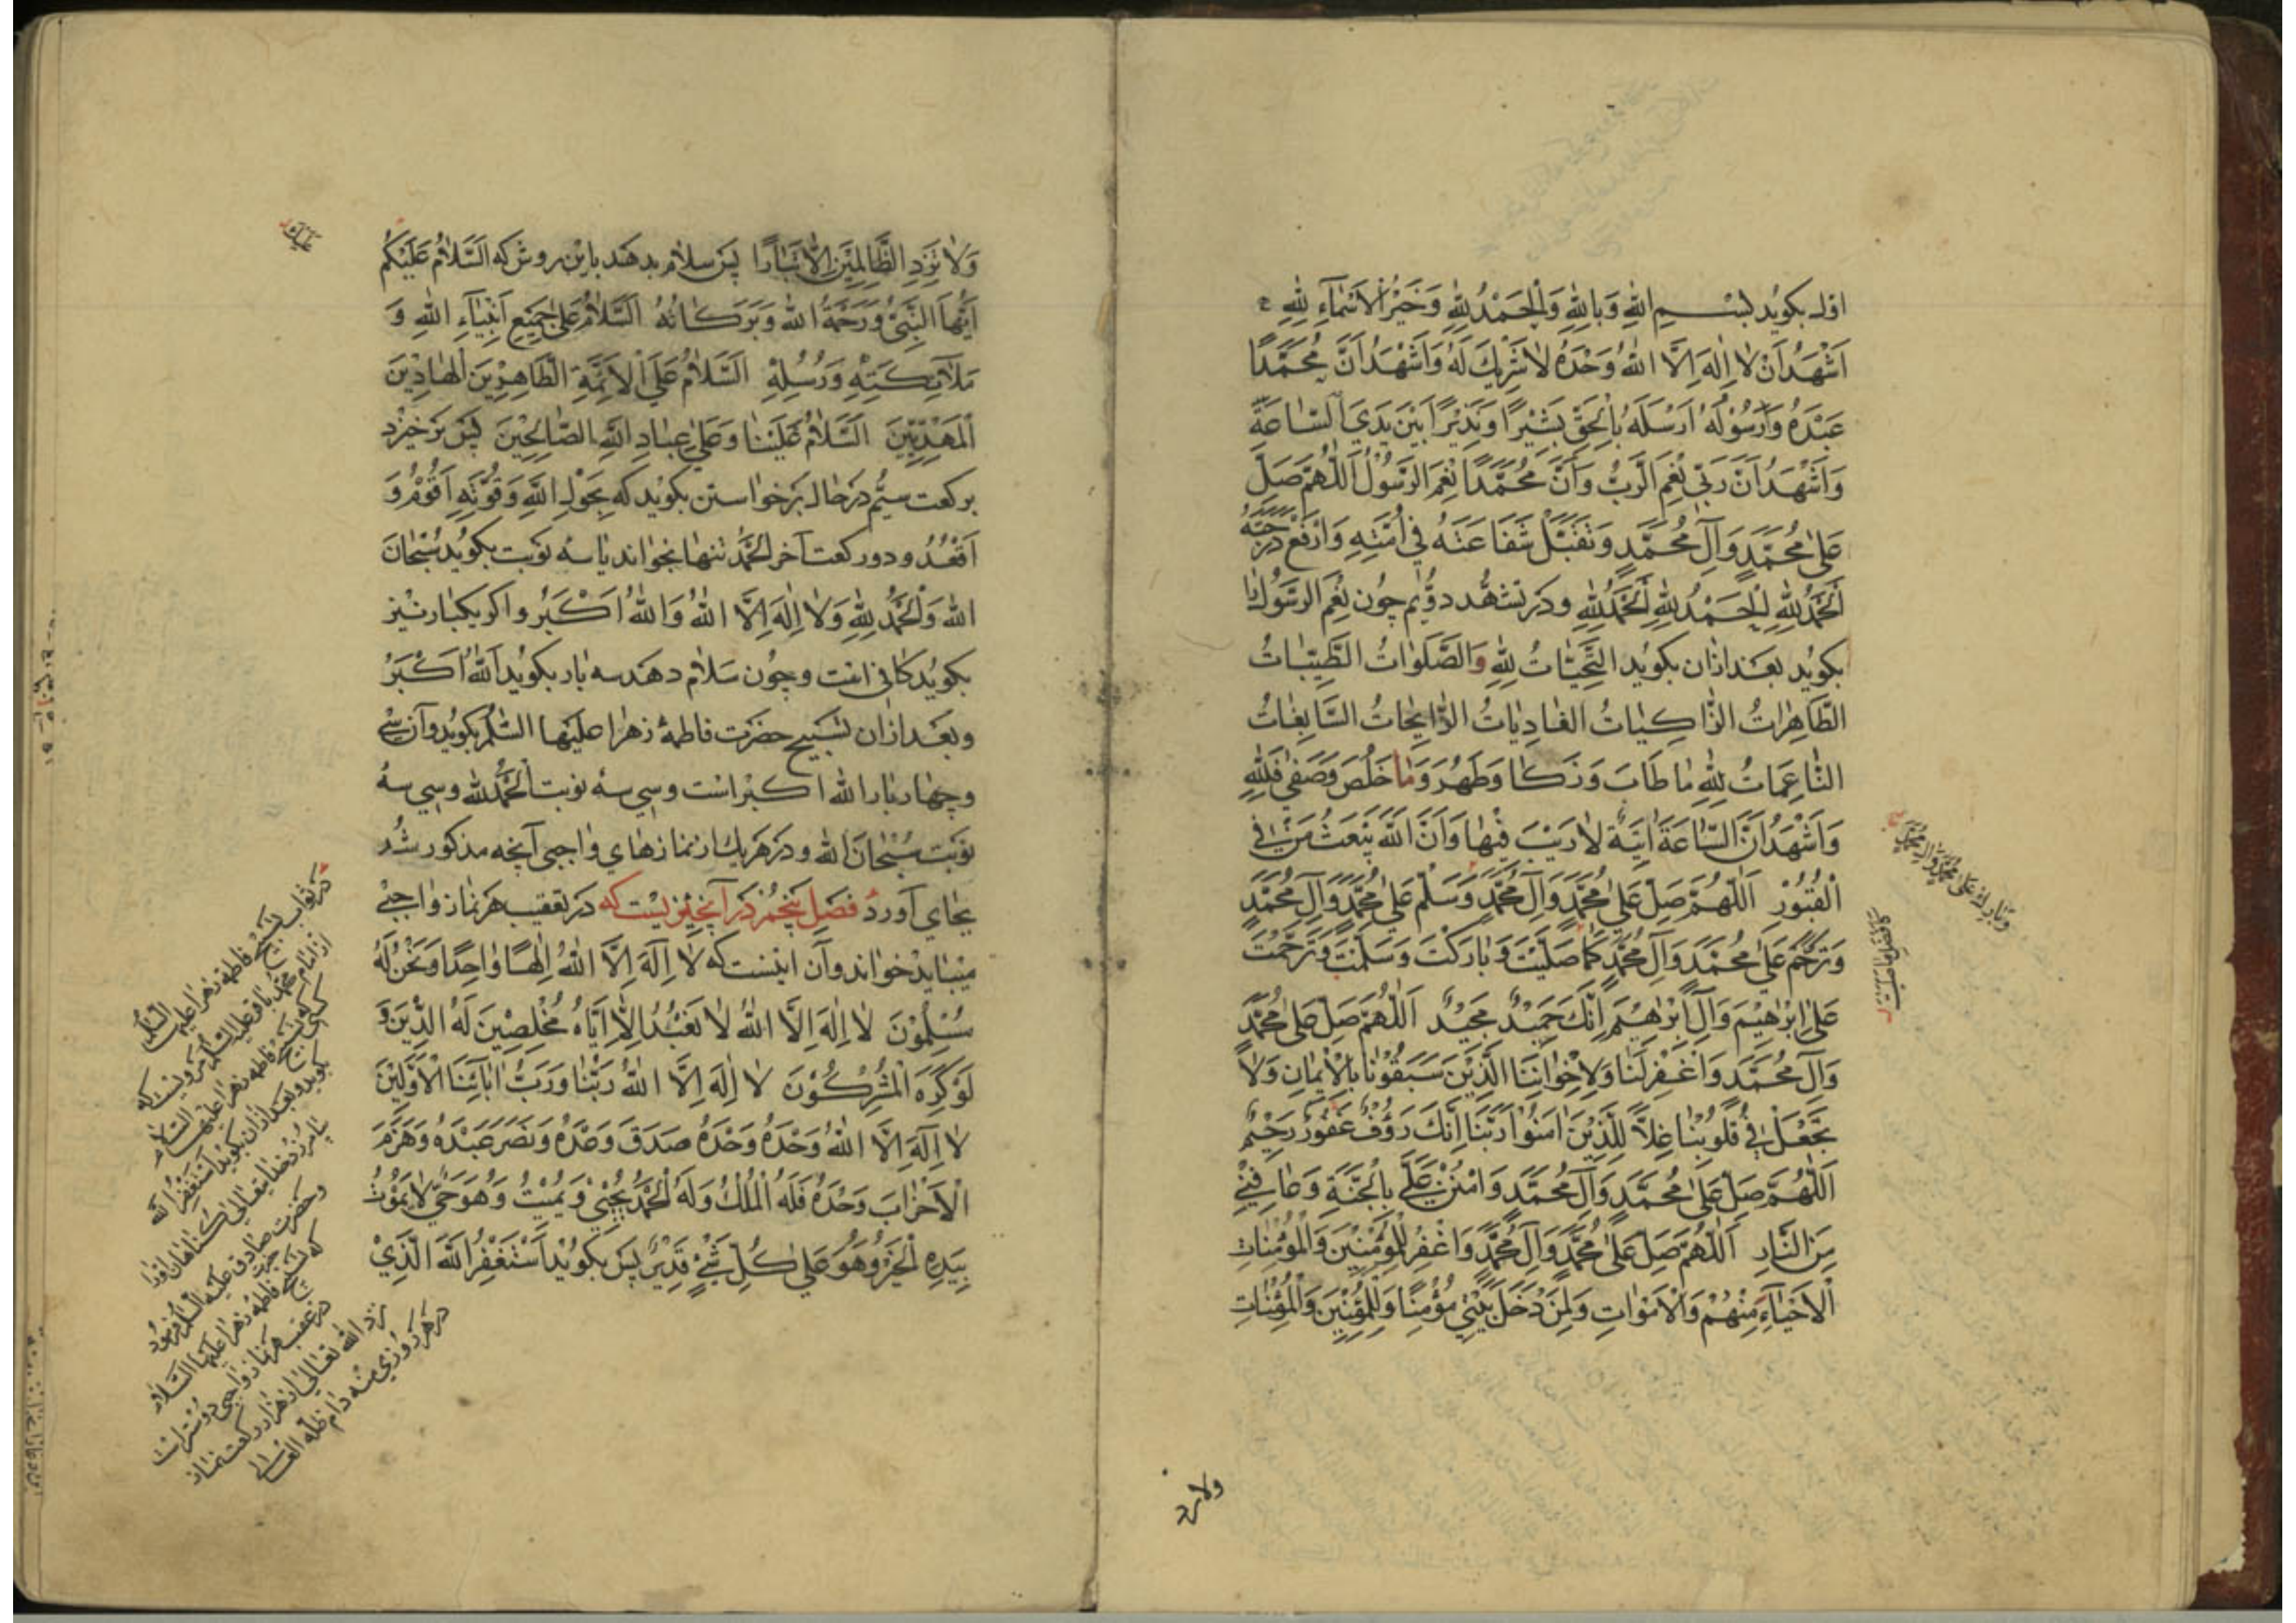 اول بکوید بسم الله وبالله والحمد لله وخیر الاسماء لله
اَشْهَدُ اَنْ لا اِلٰهَ اِلَّا اللهُ وَحْدَهُ لا شَرِیكَ لَهُ وَاَشْهَدُ اَنَّ مُحَمَّدًا
عَبْدُهُ وَرَسُوْلُهُ اَرْسَلَهُ بِالْحَقِّ بَشِیْرًا وَنَذِیْرًا بَیْنَ یَدَیِ السّاعَةِ
وَاَشْهَدُ اَنَّ رَبّی نِعْمَ الرَّبُّ وَاَنَّ مُحَمَّدًا نِعْمَ الرَّسُوْلُ اَللّٰهُمَّ صَلِّ
عَلیٰ مُحَمَّدٍ وَآلِ مُحَمَّدٍ وَتَقَبَّلْ شَفَاعَتَهُ فی اُمَّتِهِ وَارْفَعْ دَرَجَتَهُ
اَلْحَمْدُ لِلّٰهِ اَلْحَمْدُ لِلّٰهِ اَلْحَمْدُ لِلّٰهِ ودر تشهّد دوّیم چون نِعْمَ الرَّسُوْلُ را
بکوید بعد ازان بکوید التَّحِیّاتُ لِلّٰهِ وَالصَّلَواتُ الطَّیِّباتُ
الطّاهِراتُ الزّاکِیاتُ الغادِیاتُ الرّایِحاتُ السّابِغاتُ
النّاعِماتُ لِلّٰهِ ما طَابَ وَزَکا وَطَهُرَ وَما خَلُصَ وَصَفیٰ فَلِلّٰهِ
وَاَشْهَدُ اَنَّ السّاعَةَ اتِیَةٌ لارَیْبَ فیْها وَاَنَّ اللهَ یَبْعَثُ مَنْ فی
الْقُبُوْرِ اَللّٰهُمَّ صَلِّ عَلیٰ مُحَمَّدٍ وَآلِ مُحَمَّدٍ وَسَلِّمْ عَلیٰ مُحَمَّدٍ وَآلِ مُحَمَّدٍ
وَتَرَحَّمْ عَلیٰ مُحَمَّدٍ وَآلِ مُحَمَّدٍ کَما صَلَّیْتَ وَبارَکْتَ وَسَلَّمْتَ وَتَرَحَّمْتَ
عَلیٰ اِبْرٰهِیْمَ وَآلِ اِبْرٰهِیْمَ اِنَّكَ حَمِیْدٌ مَجِیْدٌ اَللّٰهُمَّ صَلِّ عَلیٰ مُحَمَّدٍ
وَآلِ مُحَمَّدٍ وَاغْفِرْ لَنا وَلِاِخْوانِنَا الَّذِیْنَ سَبَقُوْنا بِالْاِیْمانِ وَلا
تَجْعَلْ فی قُلُوْبِنا غِلًّا لِلَّذِیْنَ امَنُوْا رَبَّنا اِنَّكَ رَؤُفٌ غَفُوْرٌ رَحِیْمٌ
اَللّٰهُمَّ صَلِّ عَلیٰ مُحَمَّدٍ وَآلِ مُحَمَّدٍ وَامْنُنْ عَلَیَّ بِالْجَنَّةِ وَعافِنِیْ
مِنَ النّارِ اَللّٰهُمَّ صَلِّ عَلیٰ مُحَمَّدٍ وَآلِ مُحَمَّدٍ وَاغْفِرْ لِلْمُؤْمِنِیْنَ وَالْمُؤْمِناتِ
الْاَحْیاءِ مِنْهُمْ وَالْاَمْواتِ وَلِمَنْ دَخَلَ بَیْتِیَ مُؤْمِنًا وَلِلْمُؤْمِنِیْنَ وَالْمُؤْمِناتِ
وبارك علی محمد وآل محمد
ولا تزد
وَلا تَزِدِ الظّالِمِیْنَ اِلّا تَبارًا پس سلام بدهند باین روش که اَلسَّلامُ عَلَیْكَ
اَیُّهَا النَّبِیُّ وَرَحْمَةُ اللهِ وَبَرَکاتُهُ اَلسَّلامُ عَلیٰ جَمِیْعِ اَنْبِیاءِ اللهِ وَ
مَلائِکَتِهِ وَرُسُلِهِ اَلسَّلامُ عَلَی الْاَئِمَّةِ الطّاهِرِیْنَ الْهادِیْنَ
الْمَهْدِیِّیْنَ اَلسَّلامُ عَلَیْنا وَعَلیٰ عِبادِ اللهِ الصّالِحِیْنَ پس برخیزد
برکعت سیّم در حال برخواستن بکوید که بِحَوْلِ اللهِ وَقُوَّتِهِ اَقُوْمُ وَ
اَقْعُدُ ودو رکعت آخر الحمد تنها بخواند یا سه نوبت بکوید سُبْحانَ
اللهِ وَالْحَمْدُ لِلّٰهِ وَلا اِلٰهَ اِلَّا اللهُ وَاللهُ اَکْبَرُ واکر یکبار نیز
بکوید کافی است وچون سلام دهند سه بار بکوید اَللهُ اَکْبَرُ
وبعد ازان تسبیح حضرت فاطمهٔ زهرا علیها السّلم بکوید وآن سی
وچهار بار الله اکبر است وسی سه نوبت الحمد لله وسی سه
نوبت سُبْحانَ الله ودر هر یك از نمازهای واجبی آنچه مذکور شد
بجای آورد فصل پنجم در آنچیزیست که در تعقیب هر نماز واجبی
میباید خواند وآن اینست که لا اِلٰهَ اِلَّا اللهُ اِلٰهًا واحِدًا وَنَحْنُ لَهُ
مُسْلِمُوْنَ لا اِلٰهَ اِلَّا اللهُ لا نَعْبُدُ اِلّا اِیّاهُ مُخْلِصِیْنَ لَهُ الدِّیْنَ وَ
لَوْ کَرِهَ الْمُشْرِکُوْنَ لا اِلٰهَ اِلَّا اللهُ رَبُّنا وَرَبُّ ابائِنَا الْاَوَّلِیْنَ
لا اِلٰهَ اِلَّا اللهُ وَحْدَهُ وَحْدَهُ وَحْدَهُ صَدَقَ وَعْدَهُ وَنَصَرَ عَبْدَهُ وَهَزَمَ
الْاَحْزابَ وَحْدَهُ فَلَهُ الْمُلْكُ وَلَهُ الْحَمْدُ یُحْیِیْ وَیُمِیْتُ وَهُوَ حَیٌّ لا یَمُوْتُ
بِیَدِهِ الْخَیْرُ وَهُوَ عَلیٰ کُلِّ شَیْءٍ قَدِیْرٌ پس بکوید اَسْتَغْفِرُ اللهَ الَّذِیْ
در ثواب تسبیح فاطمه زهرا علیها السّلم
از امام محمد باقر علیه السّلم مرویست که
کسی که تسبیح فاطمه زهرا علیها السّلام
بکوید وبعد ازان بکوید استغفر الله
بیامرزد خدایتعالی کناهان اورا
وحضرت صادق علیه السّلم فرمود
که تسبیح فاطمه زهرا علیها السّلام
در عقب هر نماز واجبی دوستر است
نزد الله تعالی از هزار رکعت نماز
در هر روزی منه دام ظله العالی